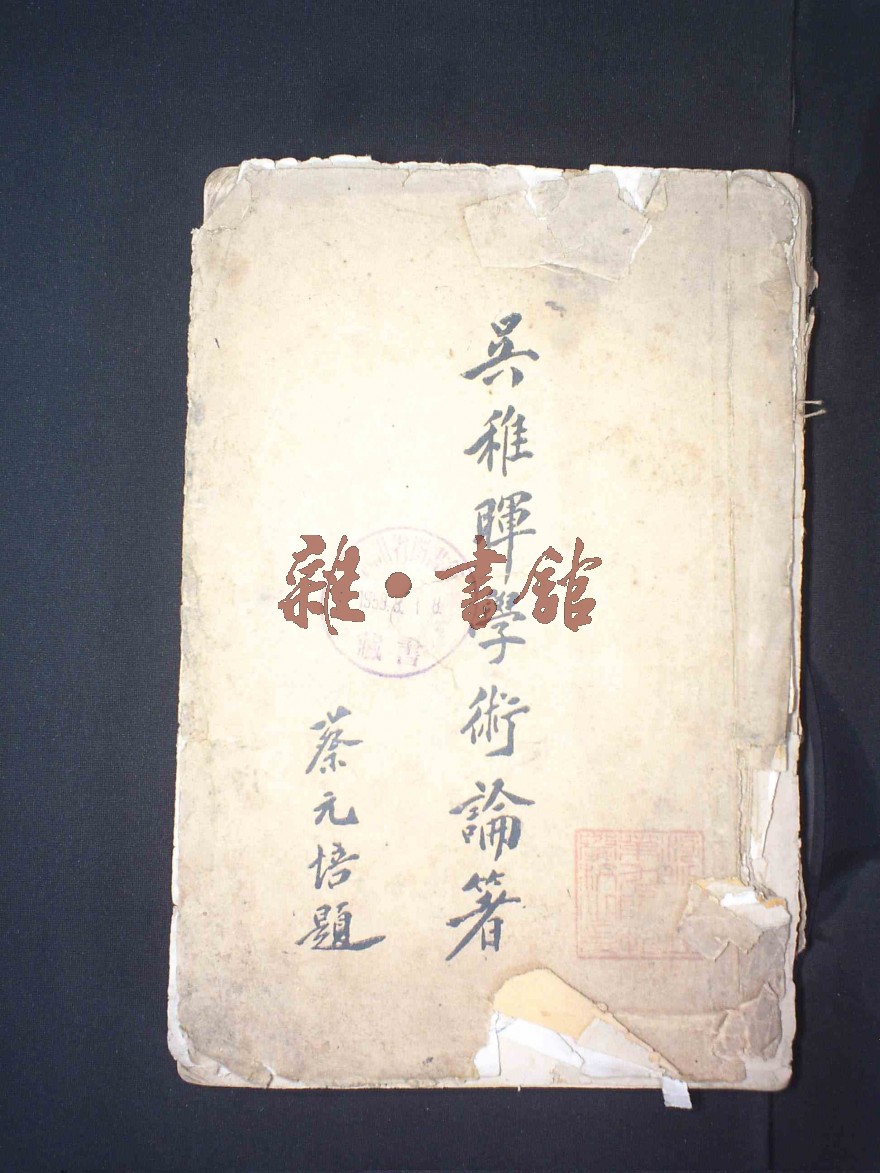 吳稚暉學術論著
蔡元培題
雜·書館
藏書